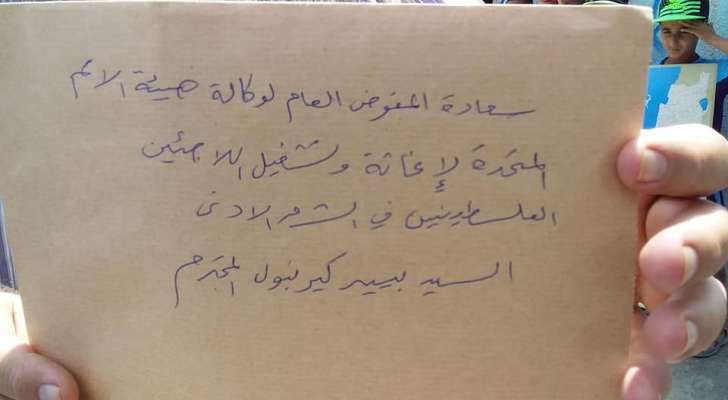 سعادة المفوض العام لوكالة هيئة الامم
المتحدة لإغاثة وتشغيل اللاجئين
الفلسطينيين في الشرق الادنى
السيد بيير كيرينبول المحترم